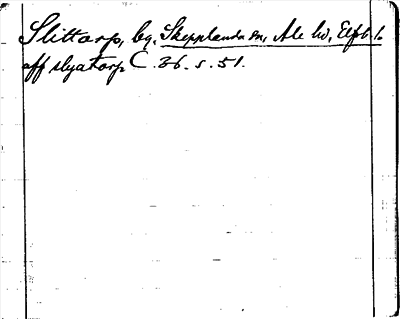 Slittorp, by, Skepplanda sn, Ale hd, Elfsb. l.
aff slyatorp C. 26. s. 51.